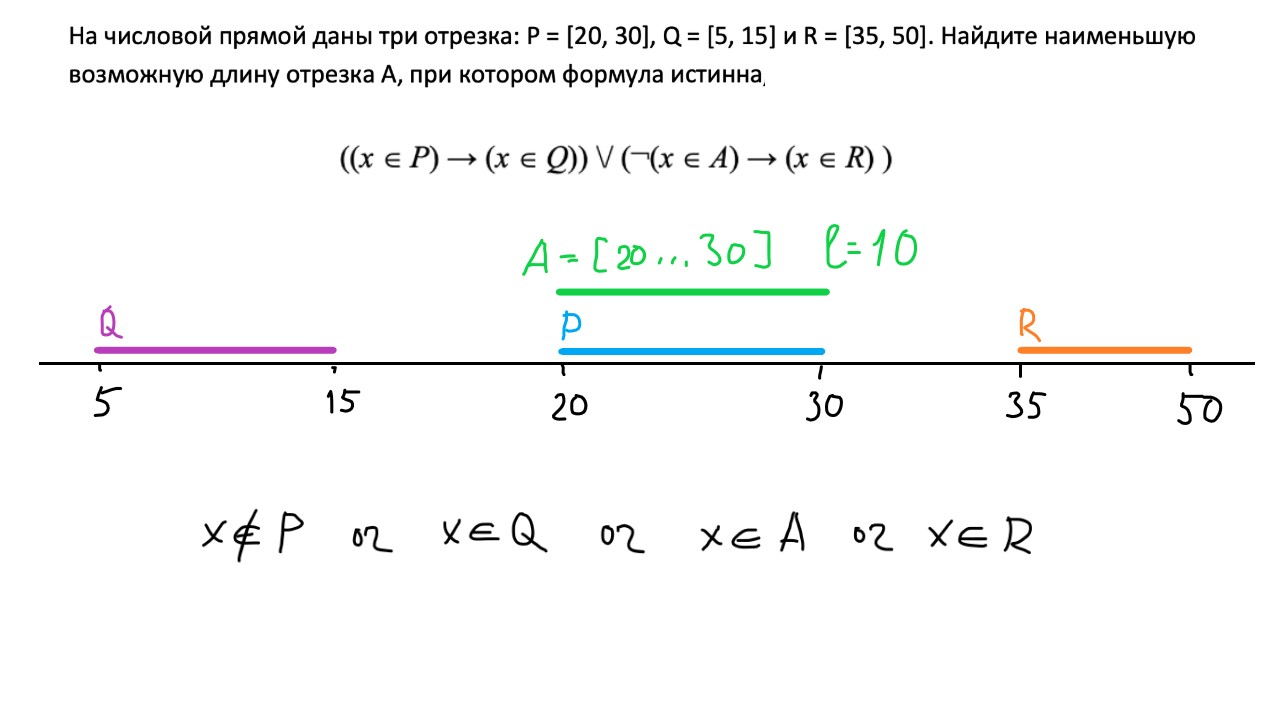 На числовой прямой даны три отрезка: P = [20, 30], Q = [5, 15] и R = [35, 50]. Найдите наименьшую
возможную длину отрезка А, при котором формула истинна,
((x ∈ P) → (x ∈ Q)) ∨ (¬(x ∈ A) → (x ∈ R) )
A = [20...30] l=10
Q P R
5 15 20 30 35 50
x∉P or x∈Q or x∈A or x∈R